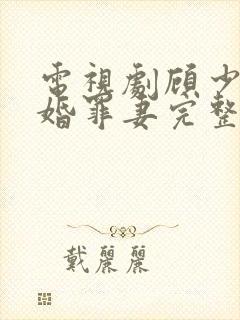 電視劇顾少
婚罪妻完整
戴麗麗